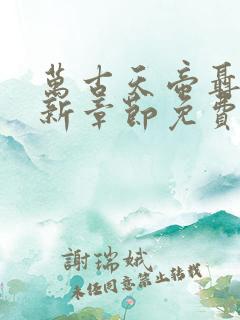 萬古天帝聶
新章節免費
謝瑞娥
未经同意禁止转载